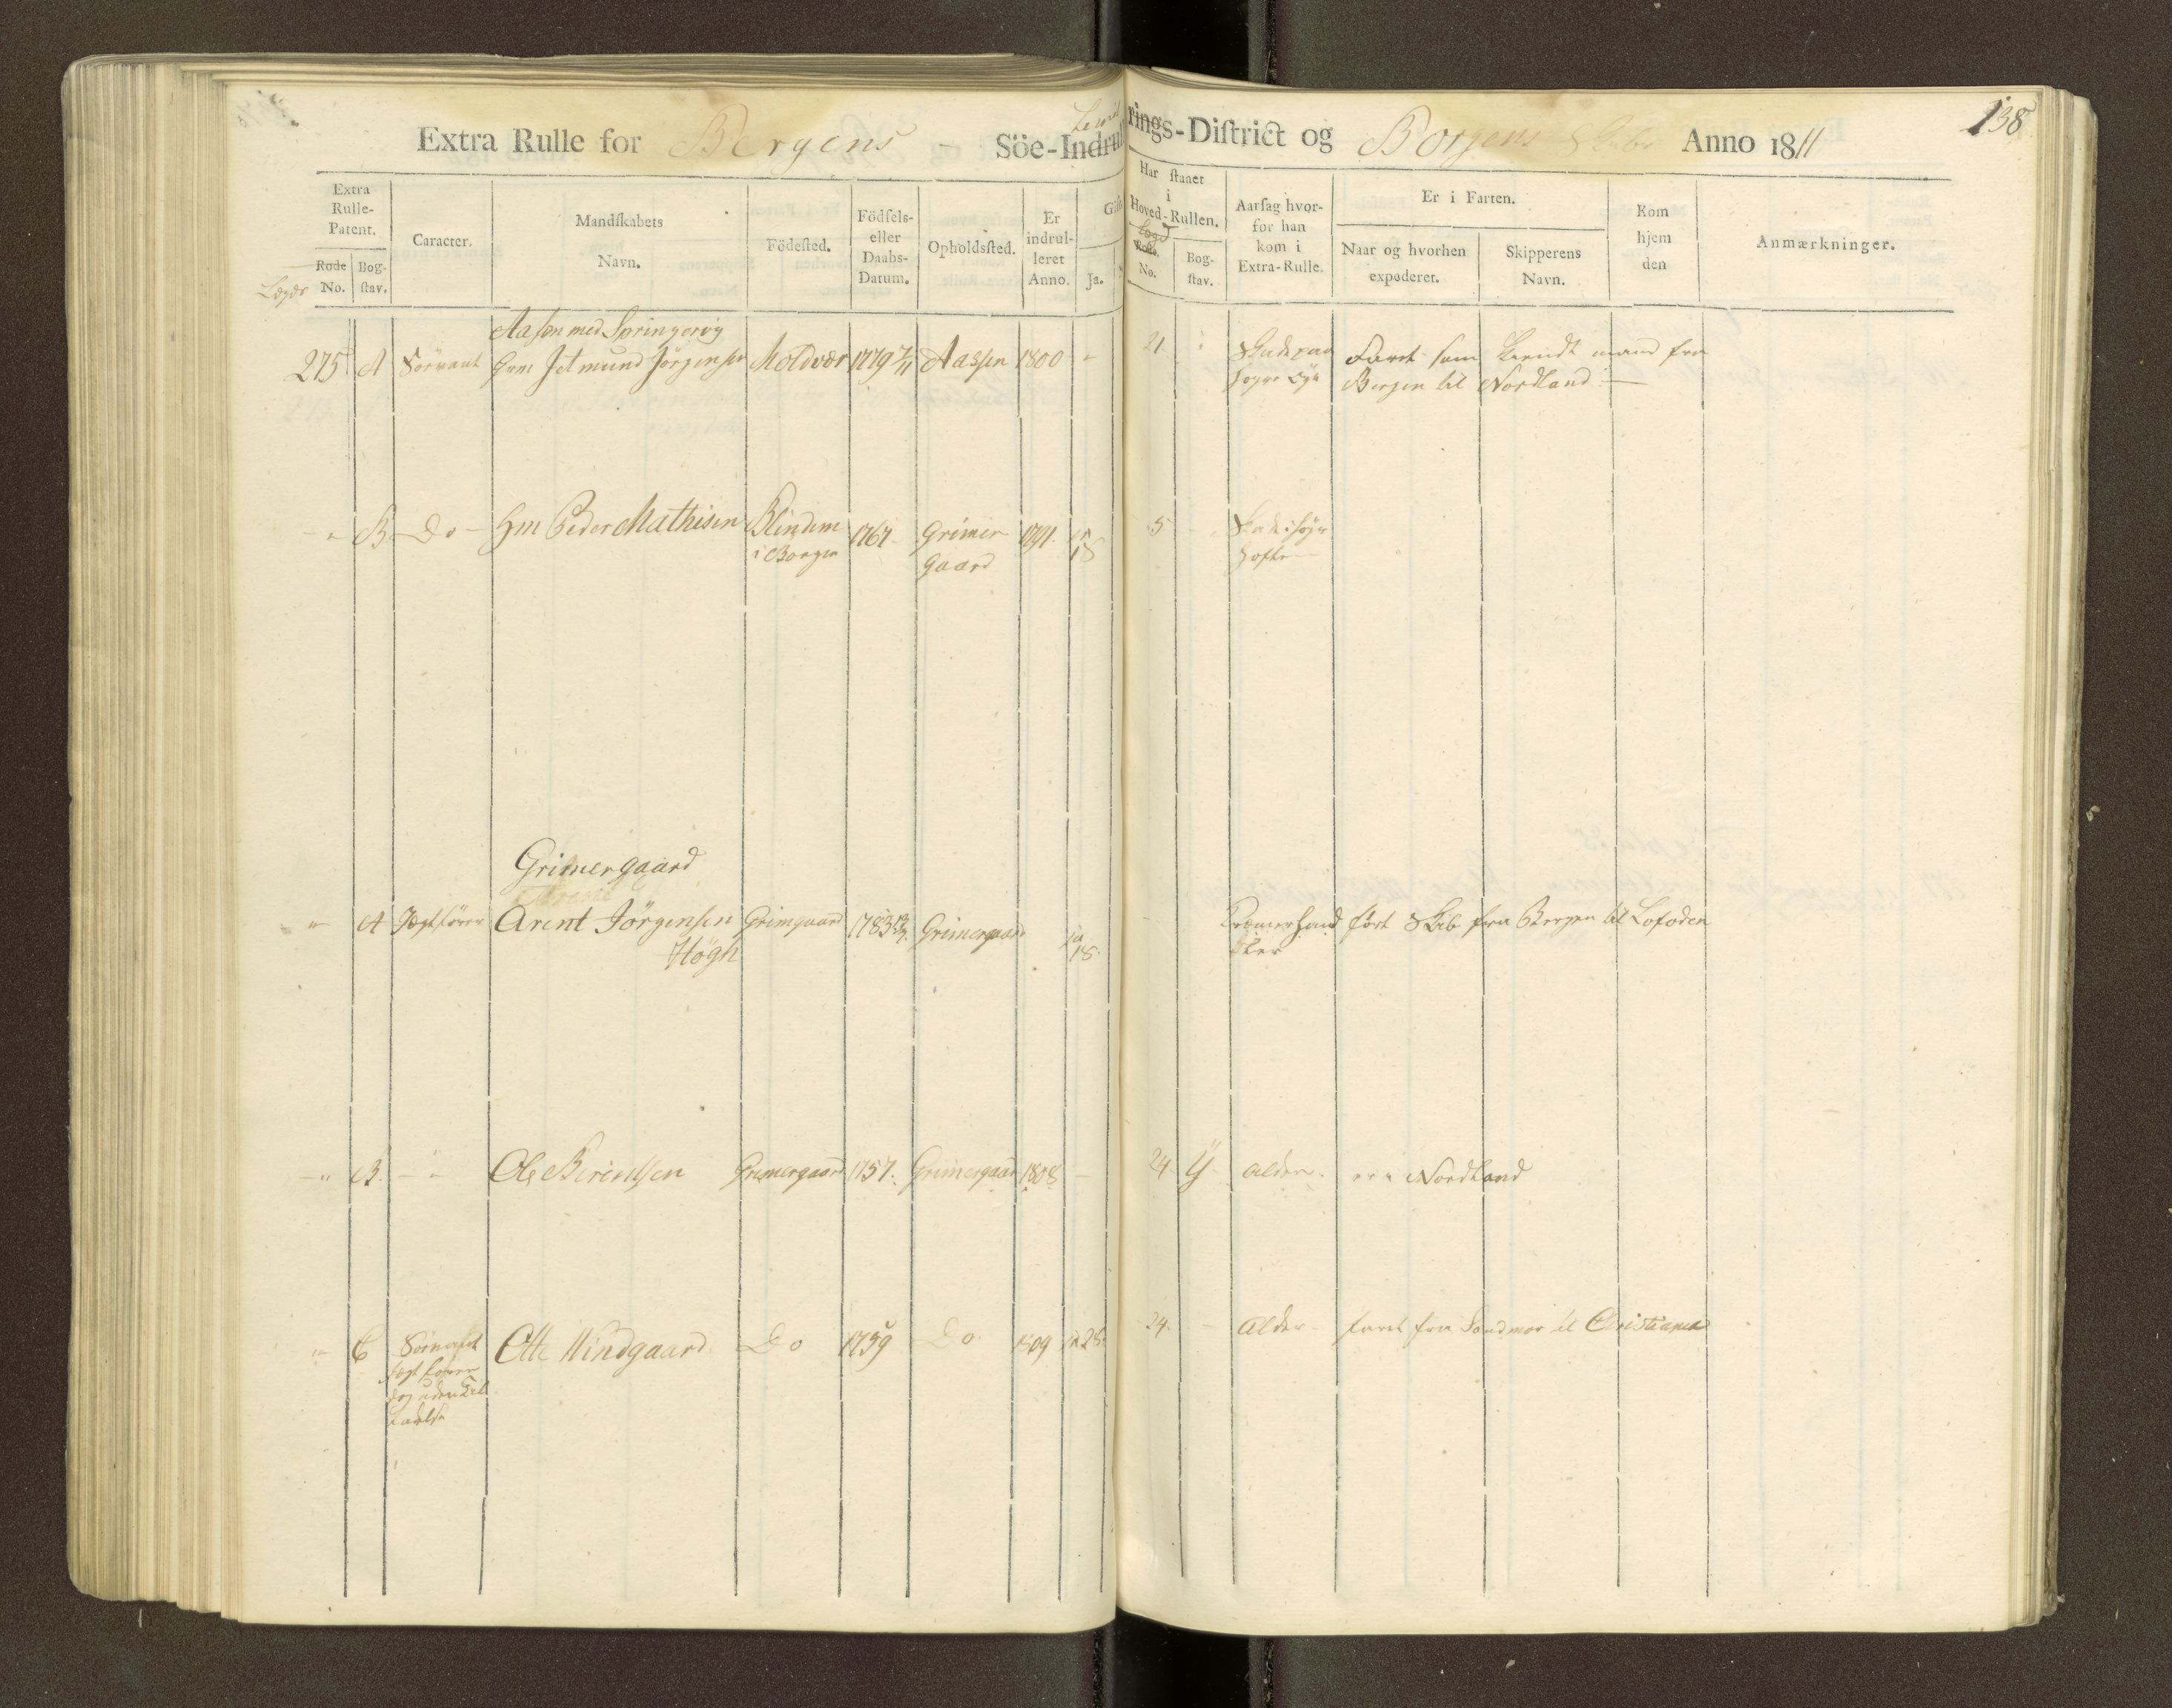 138
Extra Rulle for Bergens Söe-Indrullerings-District og Borgens Anno 1811
Extra Rulle-Patent.
Rode No.
Læger
Bogstav.
Caracter.
Mandskabets Navn.
Födested.
Födsels- eller Daabs-Datum.
Opholdssted.
Er indrulleret Anno.
Ja.
Har staaet i Hoved-Rullen.
No.
Bogstav.
Aarsag hvorfor han kom i Extra-Rulle.
Er i Farten.
Naar og hvorhen expederet.
Skipperens Navn.
Kom hjem den
Anmærkninger.
Aasen med Springervig
275 A Jetmund Jörgensen Moldvær 1779 Aassen 1800 21 Faret som kiendt mand fra
Bergen til Nordland
B Do Peder Mathisen Blindem 1767 Grimer 1791 5
i Borgen gaard
hofte
Grimergaard
A Jægtförer Arent Jörgensen Grimgaard 1783 Grimergaard ja fört Skib fra Bergen til Lofoden
Högh 18
B Ole Berentsen Grimergaard 1757 Grimergaard 1808 24 alder Nordland
C Otte Windgaard Do 1759 Do 1809 ja 28 24 Alder faret fra Søndmør til Christiania